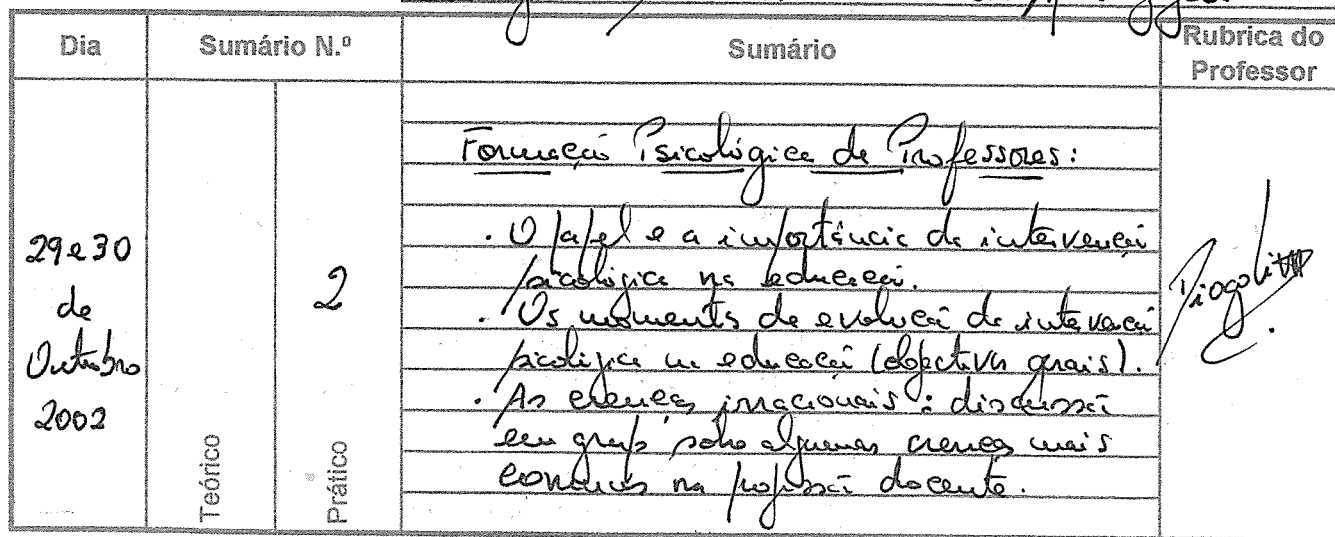 Dia
Sumário N.º
Sumário
Rubrica do
Professor
29 e 30
de
Outubro
2002
Teórico
2
Prático
Formação Psicológica de Professores:
. O papel e a importância da intervenção
psicológica na educação.
. Os momentos da evolução da intervenção
psicológica na educação (objectivos gerais).
. As crenças irracionais: discussão
em grupo sobre algumas crenças mais
comuns na profissão docente.